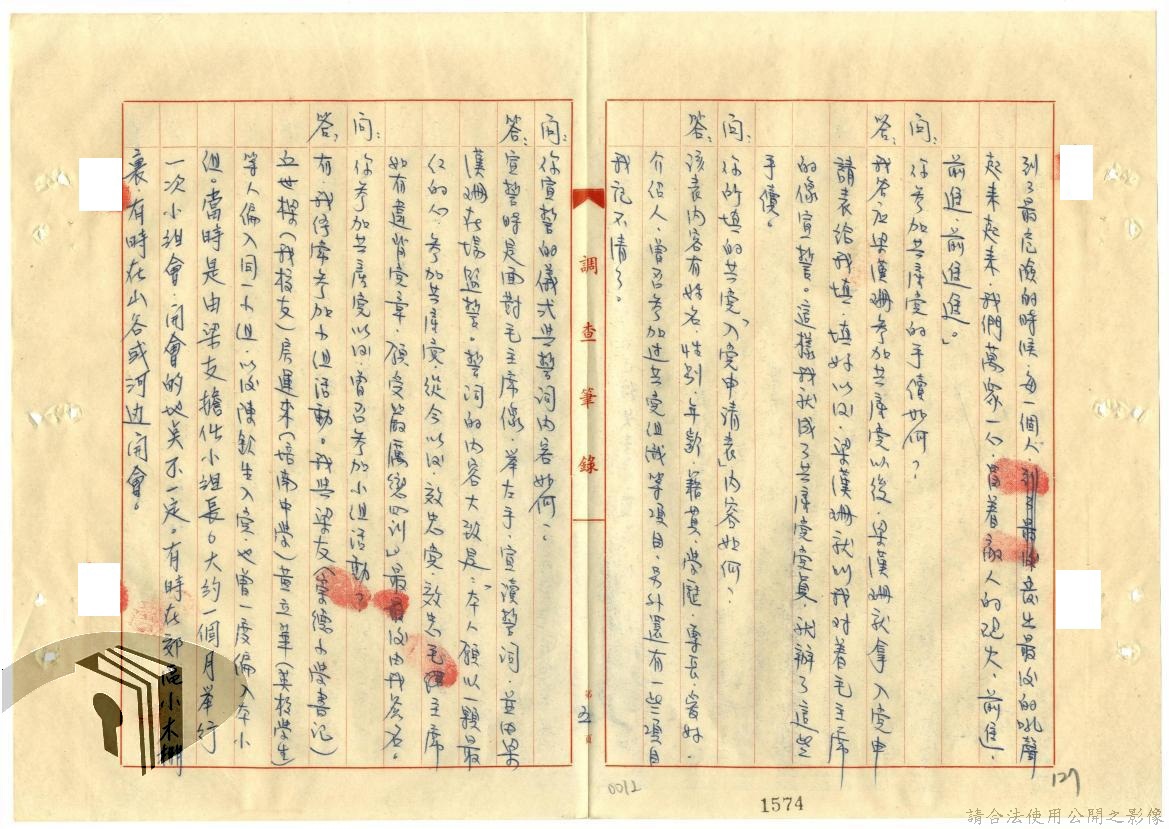 到了最危險的時候,每一個人到了最後發出最後的吼聲
起来起来,我們萬衆一心,冒着敌人的砲火,前進,
前進,前進進。」
問:你参加共產党的手續如何?
答:我答应梁漢珊参加共產党以後,梁漢珊就拿入党申
請表給我填,填好以后,梁漢珊就叫我对着毛主席
的像宣誓。這樣我就成了共產党党員,就辦了這些
手續。
問:你所填的共党「入党申請表」內容如何?
答:該表內容有姓名,性别,年齡,籍貫,学歷,專長,爱好,
介紹人,曾否参加过其党组織等項目,另外還有一些項目
我記不清了。
調查筆錄
第五頁
問:你宣誓的儀式与誓詞內容如何?
答:宣誓時是面對毛主席像,举左手,宣讀誓詞,並由梁
漢珊在場监誓。誓詞的內容大致是:「本人願以一顆最
红的心,参加共產党,從今以后,效忠党,效忠毛主席
如有違背党章,願受最嚴厲的」最後由我簽名。
問:你参加共產党以后,曾否参加小组活動?
答:有,我停牵参加小组活動。我与梁友(崇德小学書记)
(我校友)房運来(培南中学)黃立華(英校学生)
等人编入同一小组,以后陳欽生入党,也曾一度编入本小
组。當時是由梁友擔任小組長。大約一個月举行
一次小組會,開會的地点不一定。有時在郊區小木棚
裏,有時在山谷或河边開會。
0012
1574
127
請合法使用公開之影像